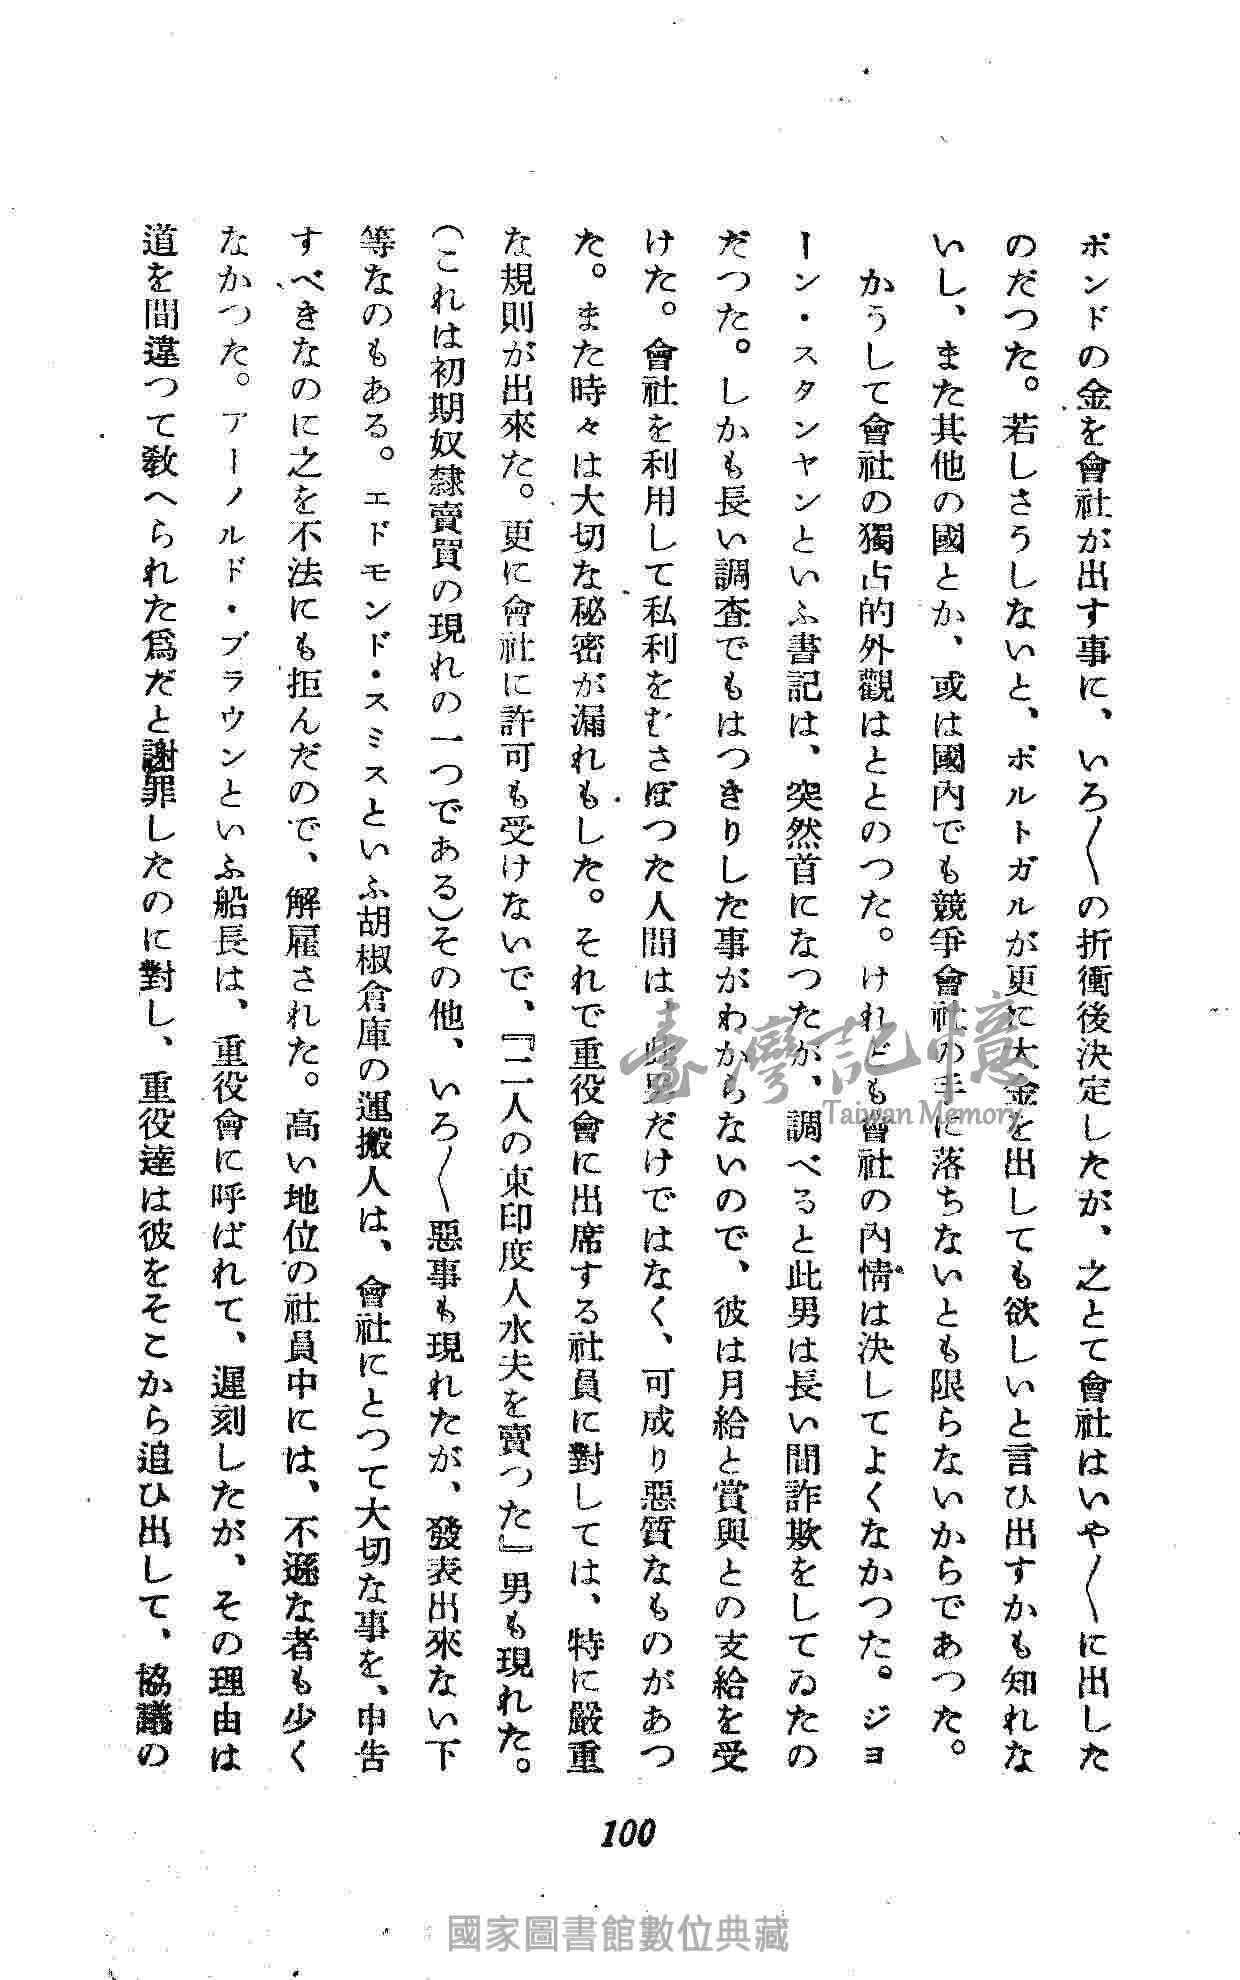 ポンドの金を會社が出す事に、いろ〱の折衝後決定したが、之とて會社はいや〱に出した
のだつた。若しさうしないと、ポルトガルが更に大金を出しても欲しいと言ひ出すかも知れな
いし、また其他の國とか、或は國内でも競爭會社の手に落ちないとも限らないからであつた。
かうして會社の獨占的外觀はととのつた。けれども會社の内情は決してよくなかつた。ジョ
ーン・スタンヤンといふ書記は、突然首になつたが、調べると此男は長い間詐欺をしてゐたの
だつた。しかも長い調査でもはつきりした事がわからないので、彼は月給と賞與との支給を受
けた。會社を利用して私利をむさぼつた人間は、此男だけではなく、可成り惡質なものがあつ
た。また時々は大切な秘密が漏れもした。それで重役會に出席する社員に對しては、特に嚴重
な規則が出來た。更に會社に許可も受けないで、『二人の東印度人水夫を賣つた』男も現れた。
(これは初期奴隸賣買の現れの一つである)その他、いろ〱惡事も現れたが、發表出來ない下
等なのもある。エドモンド・スミスといふ胡椒倉庫の運搬人は、會社にとつて大切な事を、申告
すべきなのに之を不法にも拒んだので、解雇された。高い地位の社員中には、不遜な者も少く
なかつた。アーノルド・ブラウンといふ船長は、重役會に呼ばれて、遲刻したが、その理由は
道を間違つて敎へられた爲だと謝罪したのに對し、重役達は彼をそこから追ひ出して、協議の
100
臺灣記憶
Taiwan Memory
國家圖書館數位典藏